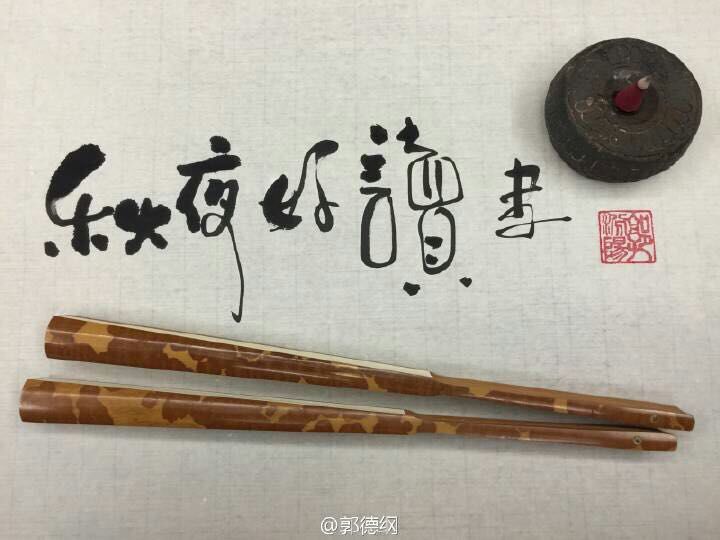 秋夜好讀书
@郭德纲